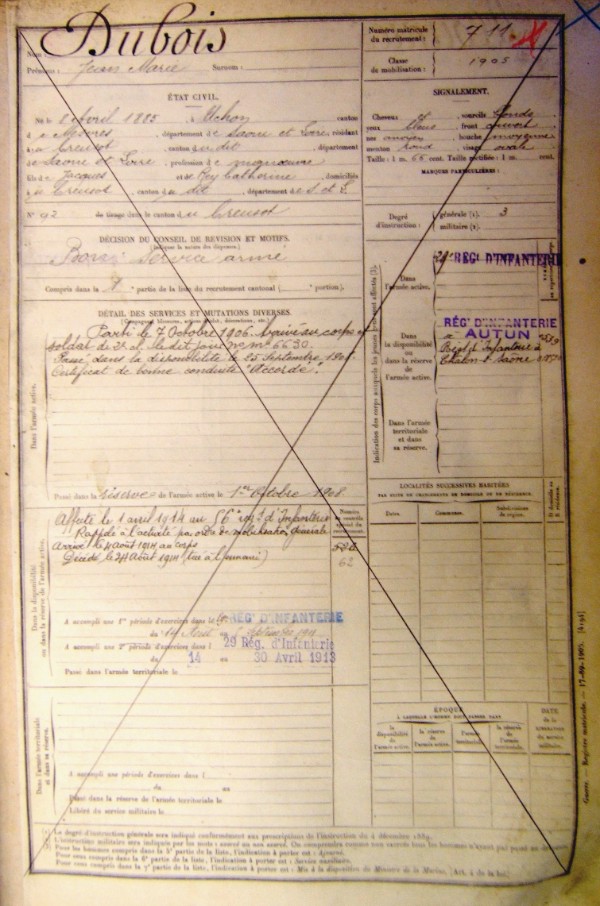 Dubois
Nom :
Prénoms : Jean Marie Surnom :
Numéro matricule
du recrutement : 711
Classe
de mobilisation : 1905
ÉTAT CIVIL.
Né le 8 Avril 1885, à canton
d département d Saône et Loire, résidant
à Creusot, canton du dit, département
de Saône et Loire, profession de
fils de Jacques et de Rey Catherine, domiciliés
à Creusot, canton du dit, département de S. et L.
N° 92 de tirage dans le canton du Creusot
SIGNALEMENT.
Cheveux sourcils blonds
yeux bleus front
nez moyen bouche moyenne
menton rond visage ovale
Taille : 1 m. 66 cent. Taille rectifiée : 1 m. cent.
MARQUES PARTICULIÈRES :
Degré
d'instruction :
générale (1). 3
militaire (2).
DÉCISION DU CONSEIL DE REVISION ET MOTIFS.
(Indiquer la nature des dispenses.)
Bon Service armé
Compris dans la 1 partie de la liste du recrutement cantonal ( portion).
DÉTAIL DES SERVICES ET MUTATIONS DIVERSES.
Parti le 7 Octobre 1906. Arrivé au corps et
soldat de 2e cl. ledit jour no mle 6630.
Passé dans la disponibilité le 25 Septembre 1908
Certificat de bonne conduite "Accordé".
Dans l'armée active.
Passé dans la réserve de l'armée active le 1er Octobre 1908
Indication des corps auxquels les jeunes gens sont affectés (3).
Dans
l'armée active.
29e RÉGt D'INFANTERIE
Dans
la disponibilité
ou dans la réserve
de l'armée active.
RÉGt D'INFANTERIE
à AUTUN
Régt d'Infanterie à
Chalon s. Saône
Dans l'armée
territoriale
et dans
sa réserve.
LOCALITÉS SUCCESSIVES HABITÉES
PAR SUITE DE CHANGEMENTS DE DOMICILE OU DE RÉSIDENCE.
Dates. Communes. Subdivisions
de région.
D. domicile ou
R. résidence.
Dans la disponibilité
ou dans la réserve de l'armée active.
Affecté le 1 avril 1914 au 56e régt d'Infanterie
Rappelé à l'activité par ordre de mobilisation générale
Arrivé le 4 août 1914 au corps
Décédé le 24 Août 1914 (tué à l'ennemi)
62
A accompli une 1re période d'exercices dans le RÉGt D'INFANTERIE
du 14 Août au Septembre 1911
A accompli une 2e période d'exercices dans l 29 Rég. d'Infanterie
du 14 au 30 Avril 1913
Passé dans l'armée territoriale le
ÉPOQUE
À LAQUELLE L'HOMME DOIT PASSER DANS
la
disponibilité
de
l'armée active.
la réserve
de
l'armée active.
l'armée
territoriale.
la réserve
de
l'armée
territoriale.
DATE
de la
LIBÉRATION
du service
militaire.
Dans l'armée territoriale
et dans sa réserve.
A accompli une période d'exercices dans l
du au
Passé dans la réserve de l'armée territoriale le
Libéré du service militaire le
(1) Le degré d'instruction générale sera indiqué conformément aux prescriptions de l'instruction du 4 décembre 1889.
Pour les hommes compris dans la 5e partie de la liste, l'indication à porter est : Ajourné.
Pour ceux compris dans la 6e partie de la liste, l'indication à porter est : Service auxiliaire.
Pour ceux compris dans la 7e partie de la liste, l'indication à porter est : Mis à la disposition du Ministre de la Marine. (Art. 4 de la loi.)
Guerre. Registre matricule. — 17-89-1905. [4191]